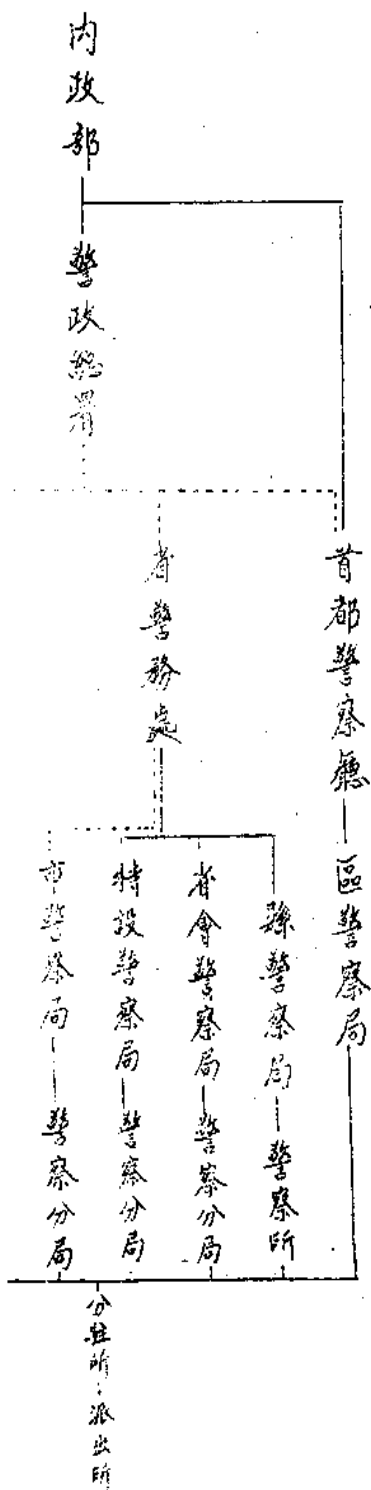 內政部
警政總署
首都警察廳
區警察局
省警務處
縣警察局
警察所
省會警察局
警察分局
特設警察局
警察分局
市警察局
警察分局
分駐所
派出所